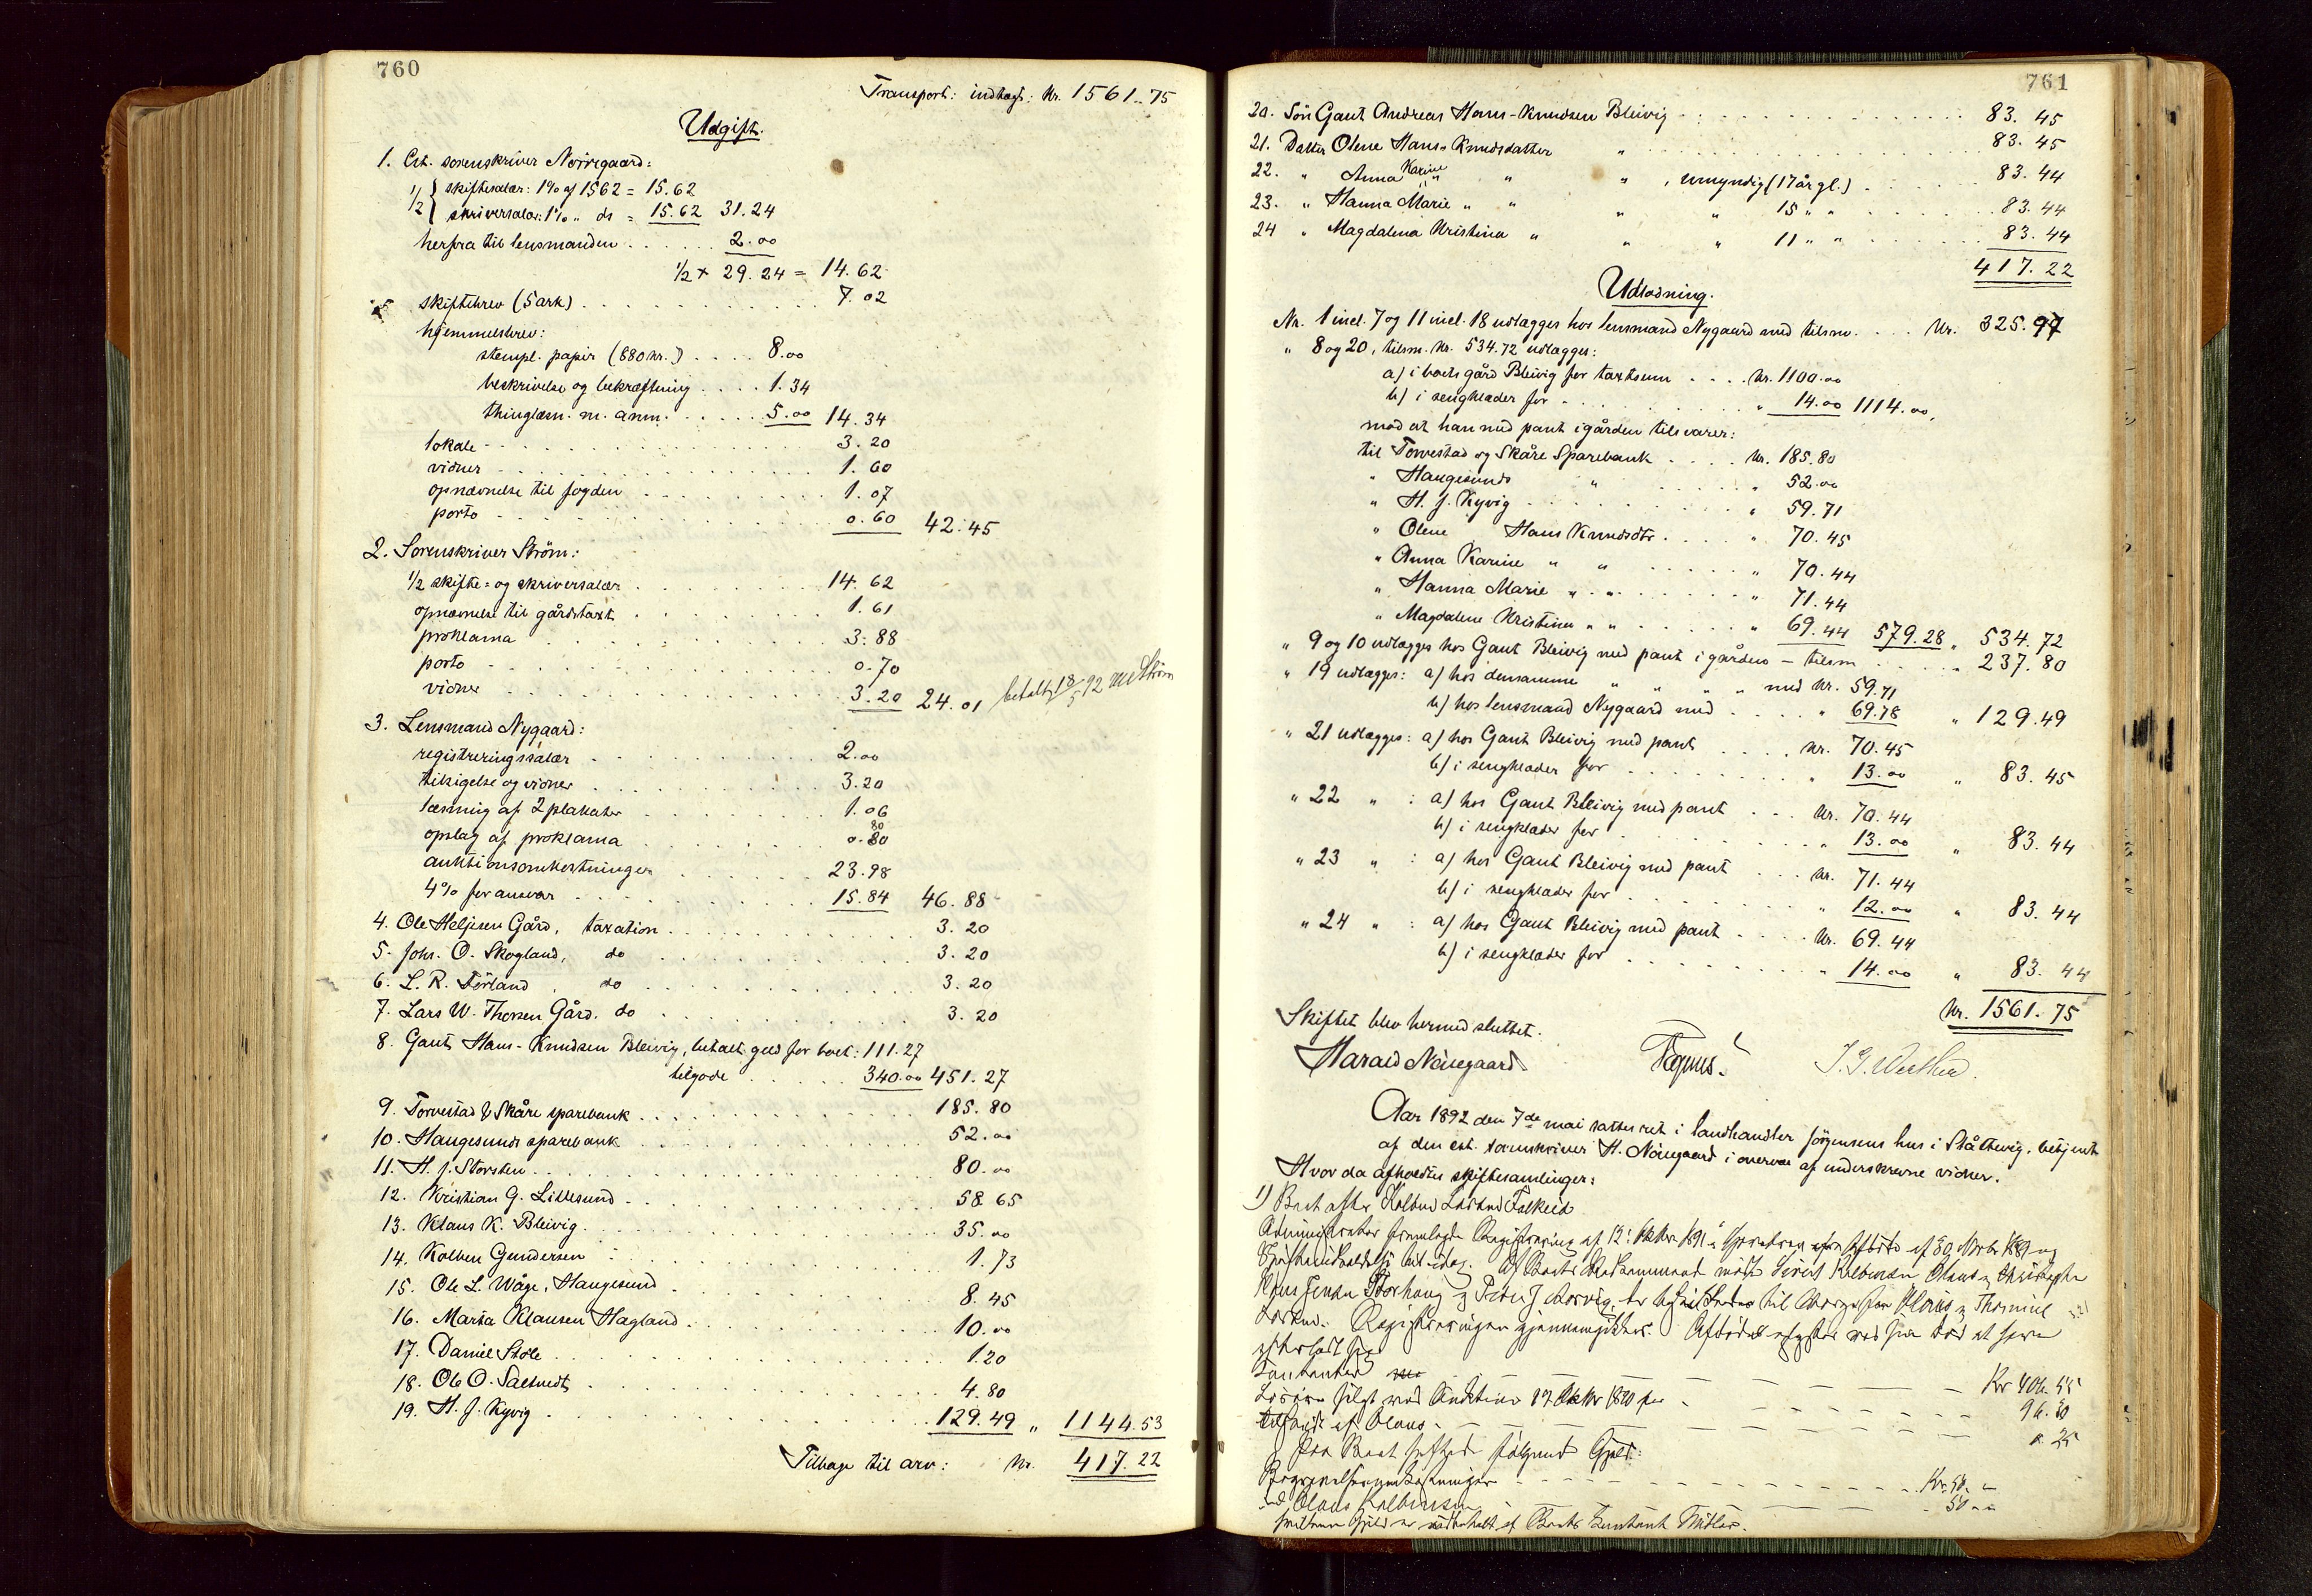 760
Transport: indtægt: Kr. 1561.75
Udgift.
1. Cst. sorenskriver Nørregaard:
1/2 { skiftesalær: 1% af 1562 = 15.62
skriversalær: 1% " do = 15.62 31.24
herfra til lensmanden . . . . . 2.00
1/2 x 29.24 = 14.62
skiftebrev (5 ark) . . . . . . . 7.02
hjemmelsbrev:
stempl. papir (880 kr.) . . . . 8.00
beskrivelse og bekræftning . . . . 1.34
thinglæsn. m. anm. . . . . . 5.00 14.34
lokale . . . . . . . . 3.20
vidner . . . . . . . . 1.60
opnævnelse til fogden . . . . . . 1.07
porto . . . . . . . . 0.60 42.45
2. Sorenskriver Strøm:
1/2 skifte= og skriversalær . . . . . . 14.62
opnævnelse til gårdstaxt . . . . . . 1.61
proklama . . . . . . . . 3.88
porto . . . . . . . . 0.70
vidner . . . . . . . . 3.20 24.01 betalt 18/5 92 Strøm
3. Lensmand Nygaard:
registreringssalær . . . . . . . 2.00
tilsigelse og vidner . . . . . . . 3.20
læsning af 2 plakater . . . . . . . 1.06
opslag af proklama . . . . . . . 0.80
auktionsomkostninger . . . . . . 23.98
4% for ansvar . . . . . . . 15.84 46.88
4. Ole Helgesen Gård, taxation . . . . . . . 3.20
5. Johs. O. Skogland, do . . . . . . . 3.20
6. L. R. Førland, do . . . . . . . 3.20
7. Lars W. Thorsen Gård. do . . . . . . . 3.20
8. Gaut Hans-Knudsen Bleivig, betalt gæld for boet: 111.27
tilgode . . . . . 340.00 451.27
9. Torvestad & Skåre sparebank . . . . . . . 185.80
10. Haugesunds sparebank . . . . . . . 52.00
11. H. J. Storsten . . . . . . . 80.00
12. Kristian G. Lillesund . . . . . . . 58.65
13. Klaus K. Bleivig . . . . . . . 35.00
14. Kolben Gundersen . . . . . . . 1.73
15. Ole L. Våge, Haugesund . . . . . . . 8.45
16. Marta Klausen Hagland . . . . . . . 10.00
17. Daniel Støle . . . . . . . 1.20
18. Ole O. Saltvedt . . . . . . . 4.80
19. H. J. Kyvig . . . . . . . 129.49 " 1144.53
Tilbage til arv: Kr. 417.22
761
20. Søn Gaut Andreas Hans-Knudsen Bleivig . . . . . . . 83.45
21. Datter Olene Hans-Knudsdatter " . . . . . . . 83.45
22. " Anna Karine " " " , umyndig (17 år gl.) . . . . . 83.44
23. " Hanna Marie " " " " 15 " " . . . . . 83.44
24 " Magdalena Kristina " " " 11 " " . . . . . 83.44
417.22
Udlodning.
Nr. 1 incl. 7 og 11 incl. 18 udlægges hos lensmand Nygaard med tilsm. . . . Kr. 325.97
" 8 og 20, tilsm. kr. 534.72 udlægges:
a) i boets gård Bleivig for taxtsum . . . . Kr. 1100.00
b) i sengklæder for . . . . . . . " 14.00 1114.00,
mod at han med pant i gården tilsvarer:
til Torvestad og Skåre Sparebank . . . . Kr. 185.80
" Haugesunds " . . . . . " 52.00
" H. J. Kyvig . . . . . . . " 59.71
" Olene Hans Knudsdtr . . . . " 70.45
" Anna Karine " " . . . . . " 70.44
" Hanna Marie " " . . . . . " 71.44
" Magdalene Kristina " " . . . . . " 69.44 579.28 " 534.72
" 9 og 10 udlægges hos Gaut Bleivig med pant i gården - tilsm . . . . " 237.80
" 19 udlægges: a) hos densamme " " " " med Kr. 59.71
b) hos lensmand Nygaard med . . . . " 69.78 " 129.49
" 21 udlægges: a) hos Gaut Bleivig med pant . . . . Kr. 70.45
b) i sengklæder for . . . . . . . " 13.00 " 83.45
" 22 " : a) hos Gaut Bleivig med pant . . . Kr. 70.44
b) i sengklæder for . . . . . . . " 13.00 " 83.44
" 23 " : a) hos Gaut Bleivig med pant . . . Kr. 71.44
b) i sengklæder for . . . . . . . " 12.00 " 83.44
" 24 " : a) hos Gaut Bleivig med pant . . . . Kr. 69.44
b) i sengklæder for . . . . . . . " 14.00 " 83.44
Kr. 1561.75
Skiftet blev hermed sluttet.
Harald Nörregaard
Aar 1892 den 7de mai sattes ret i landhandler Jørgensens hus i Slåttevig, betjent
af den cst. sorenskriver H. Nörregaard i overvær af underskrevne vidner.
Hvor da afholdtes skiftesamlinger:
1) Boet efter
Administrator fremlagde Registrering af 12
Registreringen gjennemgikkes.
Kr 406.55
Løsøre solgt ved Auktion
96.
af Olaus
Paa Boet hefted følgende Gjæld:
Begravelsesomkostninger Kr. 50
50
af Boets